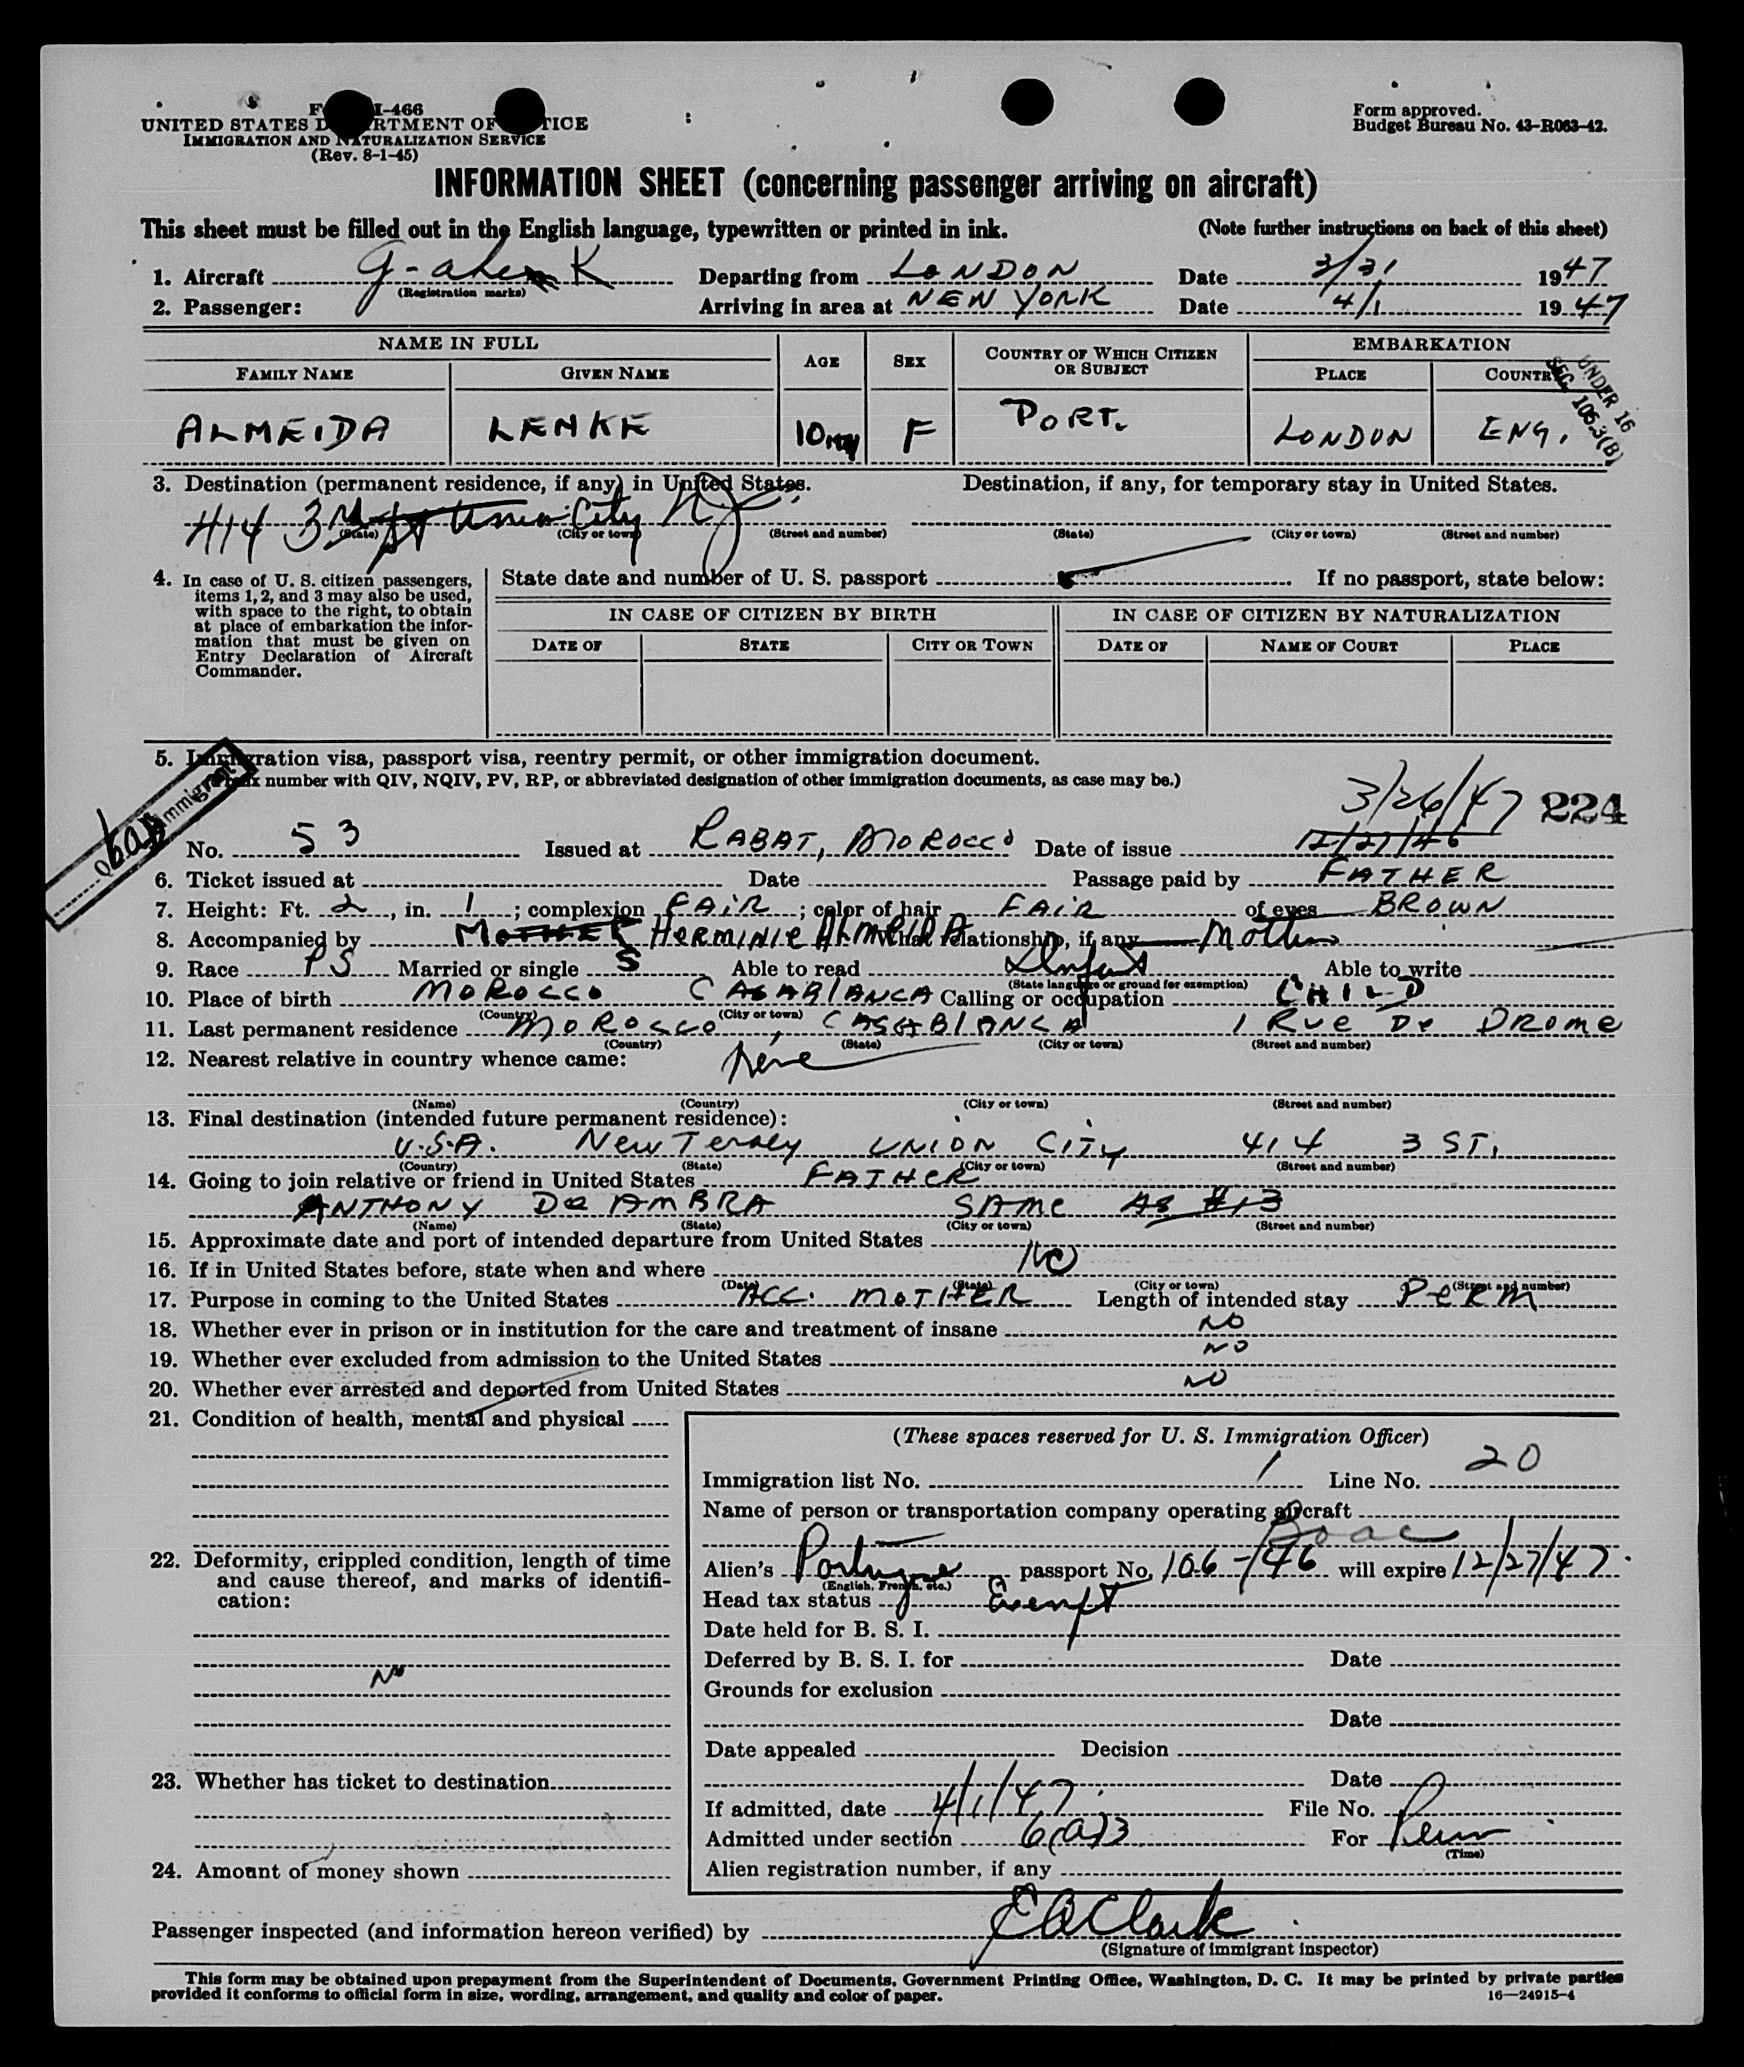 UNITED STATES OF
IMMIGRATION AND NATURALIZATION SERVICE
(Rev. 8-1-45)
Form approved.
Budget Bureau No. 43-R063-42.
INFORMATION SHEET (concerning passenger arriving on aircraft)
This sheet must be filled out in the English language, typewritten or printed in ink. (Note further instructions on back of this sheet)
1. Aircraft K Departing from LONDON Date 3/31 1947
(Registration marks)
2. Passenger: Arriving in area at NEW YORK Date 4/1 1947
NAME IN FULL AGE SEX COUNTRY OF WHICH CITIZEN OR SUBJECT EMBARKATION
FAMILY NAME GIVEN NAME PLACE COUNTRY
UNDER 16
SEC. 105.3(B)
ALMEIDA LENKE 10 F PORT. LONDON ENG.
3. Destination (permanent residence, if any) in United States. Destination, if any, for temporary stay in United States.
414 3rd St Union City NJ
(State) (City or town) (Street and number) (State) (City or town) (Street and number)
4. In case of U. S. citizen passengers, items 1, 2, and 3 may also be used, with space to the right, to obtain at place of embarkation the information that must be given on Entry Declaration of Aircraft Commander.
State date and number of U. S. passport If no passport, state below:
IN CASE OF CITIZEN BY BIRTH IN CASE OF CITIZEN BY NATURALIZATION
DATE OF STATE CITY OR TOWN DATE OF NAME OF COURT PLACE
5. Immigration visa, passport visa, reentry permit, or other immigration document.
number with QIV, NQIV, PV, RP, or abbreviated designation of other immigration documents, as case may be.)
3/26/47 224
No. 53 Issued at RABAT, MOROCCO Date of issue 12/27/46
6. Ticket issued at Date Passage paid by FATHER
7. Height: Ft. 2, in. 1; complexion FAIR; color of hair FAIR of eyes BROWN
8. Accompanied by MOTHER HERMINIE ALMEIDA What relationship, if any Mother
9. Race PS Married or single S Able to read Infant Able to write
(State language or ground for exemption)
10. Place of birth MOROCCO CASABLANCA Calling or occupation CHILD
(Country) (City or town)
11. Last permanent residence MOROCCO, CASABLANCA 1 RUE De DROME
(Country) (State) (City or town) (Street and number)
12. Nearest relative in country whence came:
(Name) (Country) (City or town) (Street and number)
13. Final destination (intended future permanent residence):
U.S.A. New Jersey UNION CITY 414 3 ST.
(Country) (State) (City or town) (Street and number)
14. Going to join relative or friend in United States FATHER
ANTHONY De AMBRA SAME AS #13
(Name) (State) (City or town) (Street and number)
15. Approximate date and port of intended departure from United States
16. If in United States before, state when and where NO
(Date) (State) (City or town) (Street and number)
17. Purpose in coming to the United States ACC. MOTHER Length of intended stay PERM
18. Whether ever in prison or in institution for the care and treatment of insane NO
19. Whether ever excluded from admission to the United States NO
20. Whether ever arrested and deported from United States NO
21. Condition of health, mental and physical
22. Deformity, crippled condition, length of time and cause thereof, and marks of identification:
No
23. Whether has ticket to destination
24. Amount of money shown
(These spaces reserved for U. S. Immigration Officer)
Immigration list No. 1 Line No. 20
Name of person or transportation company operating aircraft
Boac
Alien's Portuguese passport No. 106-/46 will expire 12/27/47.
(English, French, etc.)
Head tax status Exempt
Date held for B. S. I.
Deferred by B. S. I. for Date
Grounds for exclusion
Date
Date appealed Decision
Date
If admitted, date 4/1/47 File No.
Admitted under section 6(a)3 For Perm
(Time)
Alien registration number, if any
Passenger inspected (and information hereon verified) by E A Clark
(Signature of immigrant inspector)
This form may be obtained upon prepayment from the Superintendent of Documents, Government Printing Office, Washington, D. C. It may be printed by private parties
provided it conforms to official form in size, wording, arrangement, and quality and color of paper.
16—24915-4